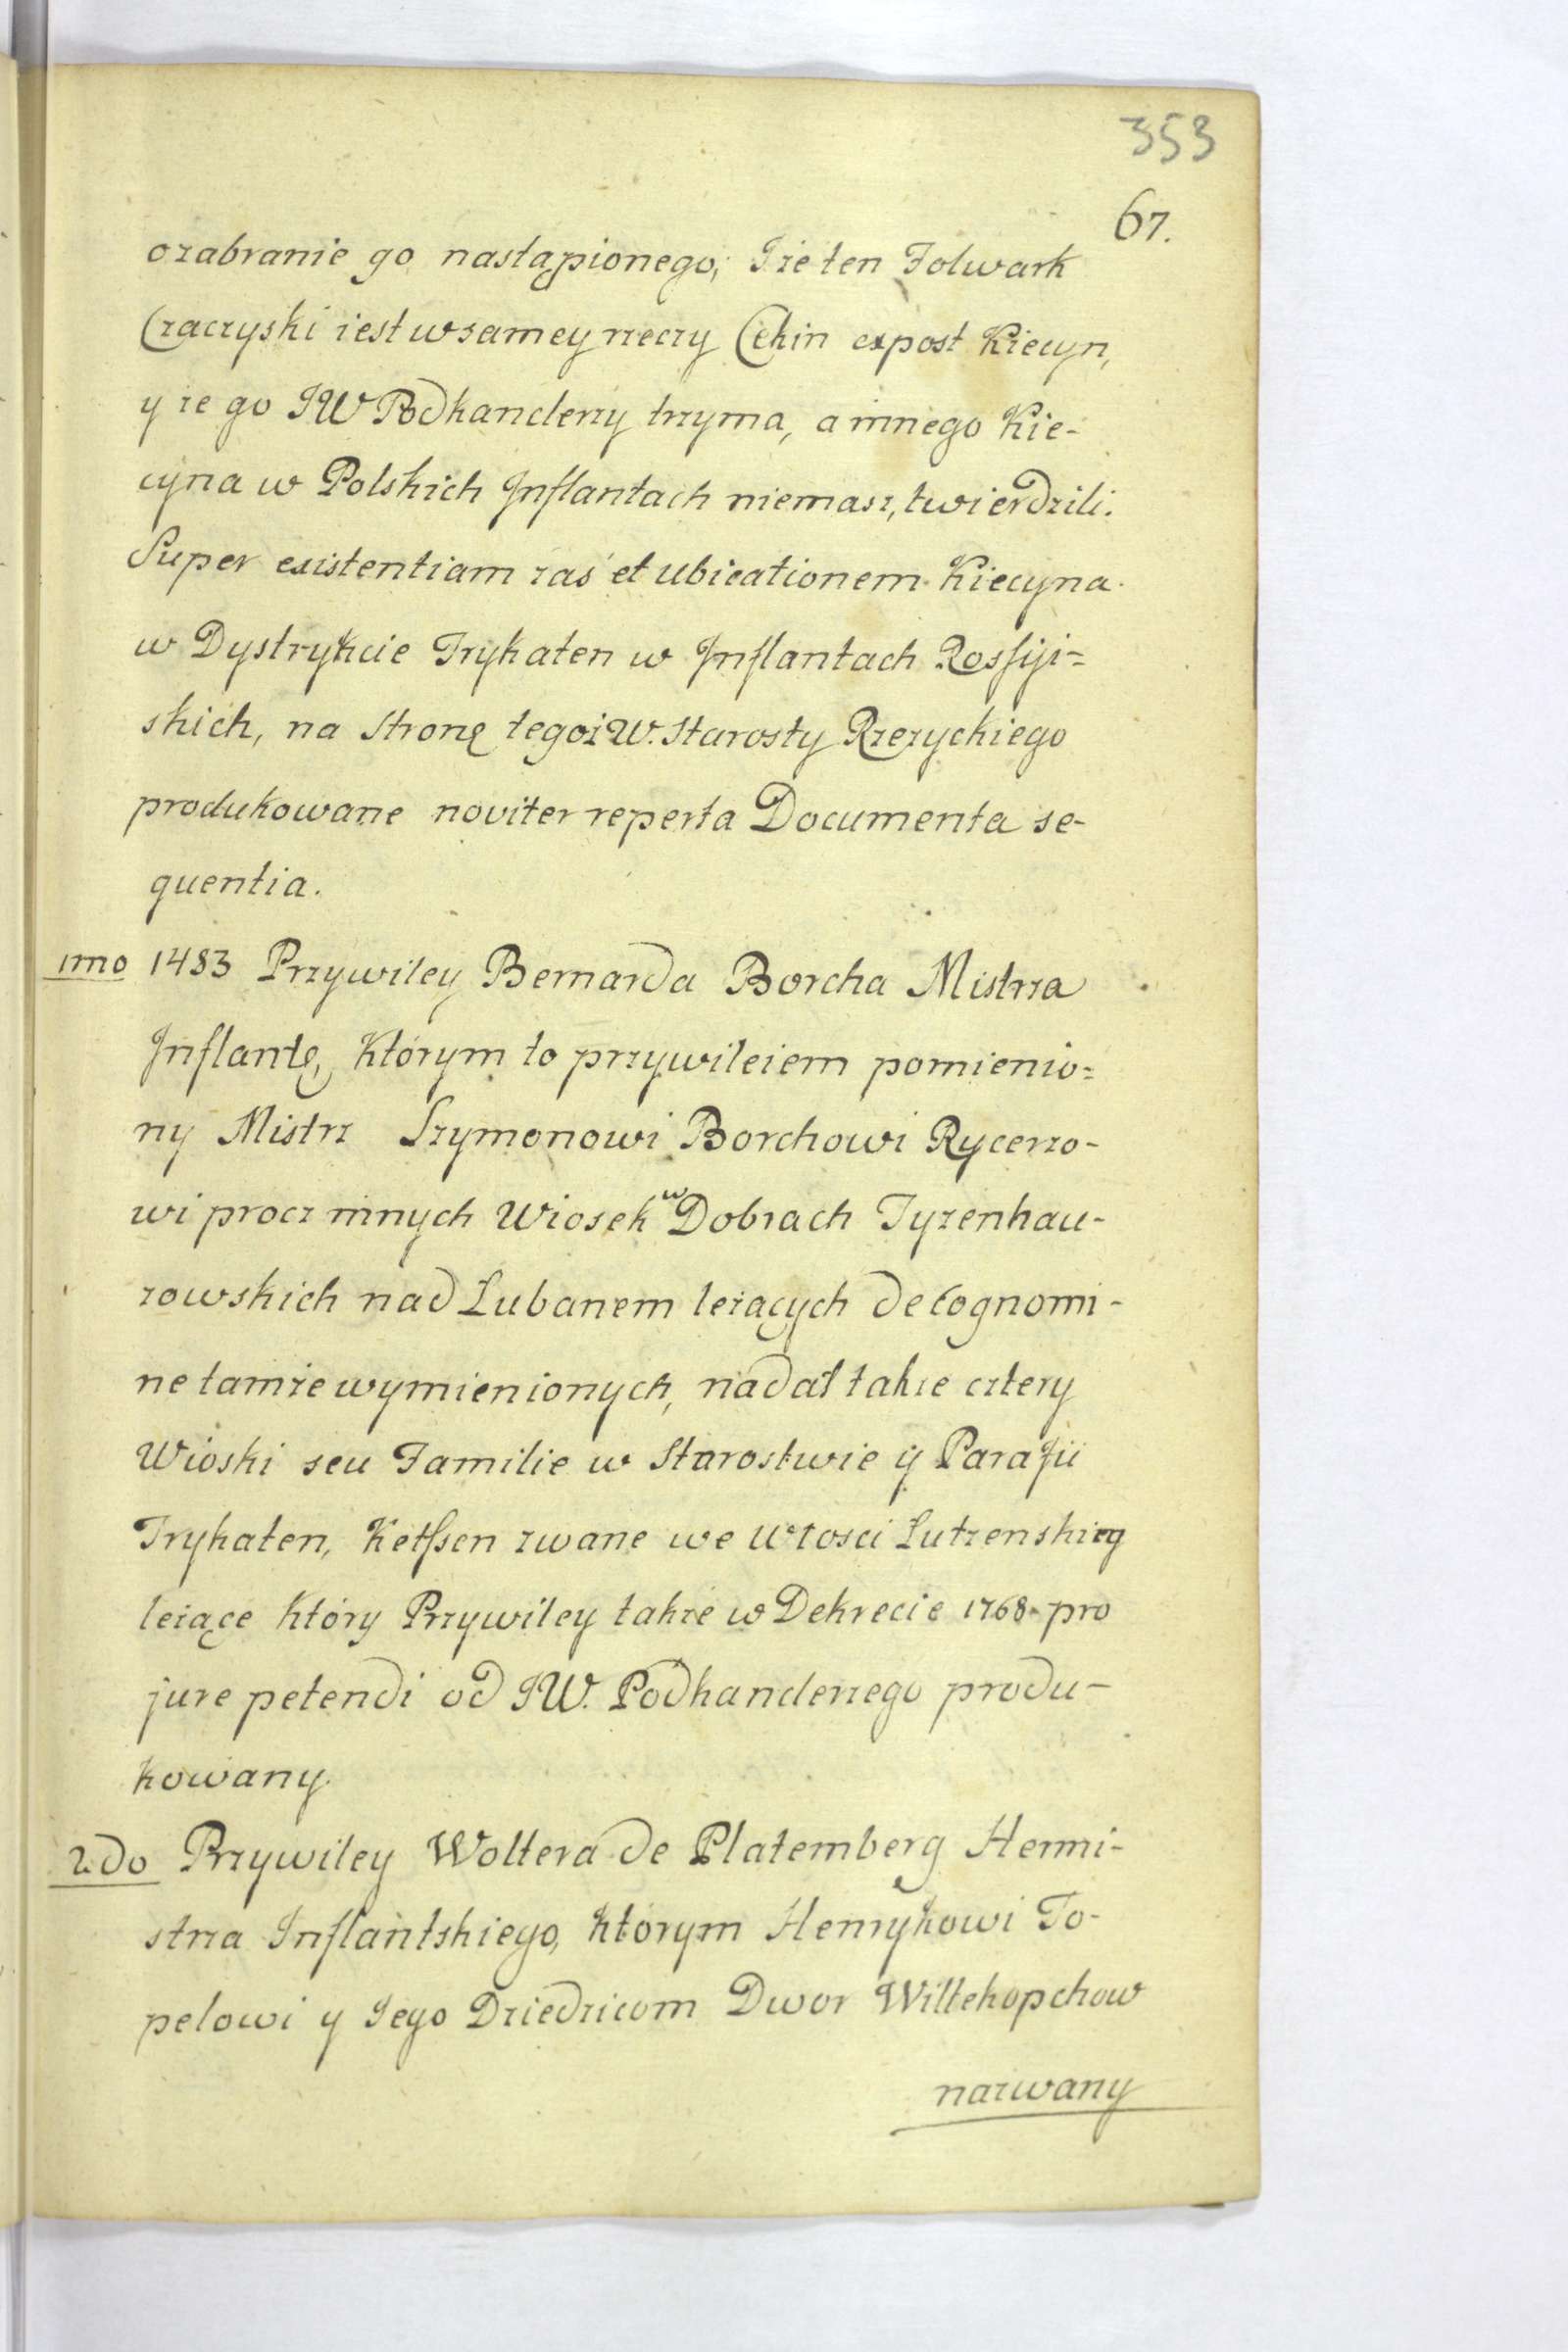 353
67.
o zabranie go nastąpionego; I że ten Folwark
Czaczyski iest w samey rzeczy Cekin expost Kiecyn,
y że go JW Podkanclerzy trzyma, a innego Kie-
cyna w Polskich Inflantach niemasz, twierdzili.
Super existentiam zaś et ubicationem Kiecyna
w Dystrykcie Trykaten w Inflantach Rossyi=
skich, na stronę tegoż W. Starosty Rzeżyckiego
produkowane noviter reperta Documenta se-
quentia.
1mo 1483 Przywiley Bernarda Borcha Mistrza
Inflantę, którym to przywileiem pomienio=
ny Mistrz Szymonowi Borchowi Rycerzo-
wi procz innych Wiosek w Dobrach Tyzenhau-
zowskich nad Lubanem leżących de cognomi-
ne tamże wymienionych, nadał także cztery
Wioski seu Familie w Starostwie y Parafii
Trykaten, Ketssen zwane we Włosci Lutzenskieg
leżące który Przywiley także w Dekrecie 1768 pro
jure petendi od JW. Podkanclerzego produ-
kowany.
2do Przywiley Woltera de Platemberg Hermi-
strza Inflantskiego, którym Henrykowi To-
pelowi y Jego Dziedzicom Dwor Willekopchow
nazwany